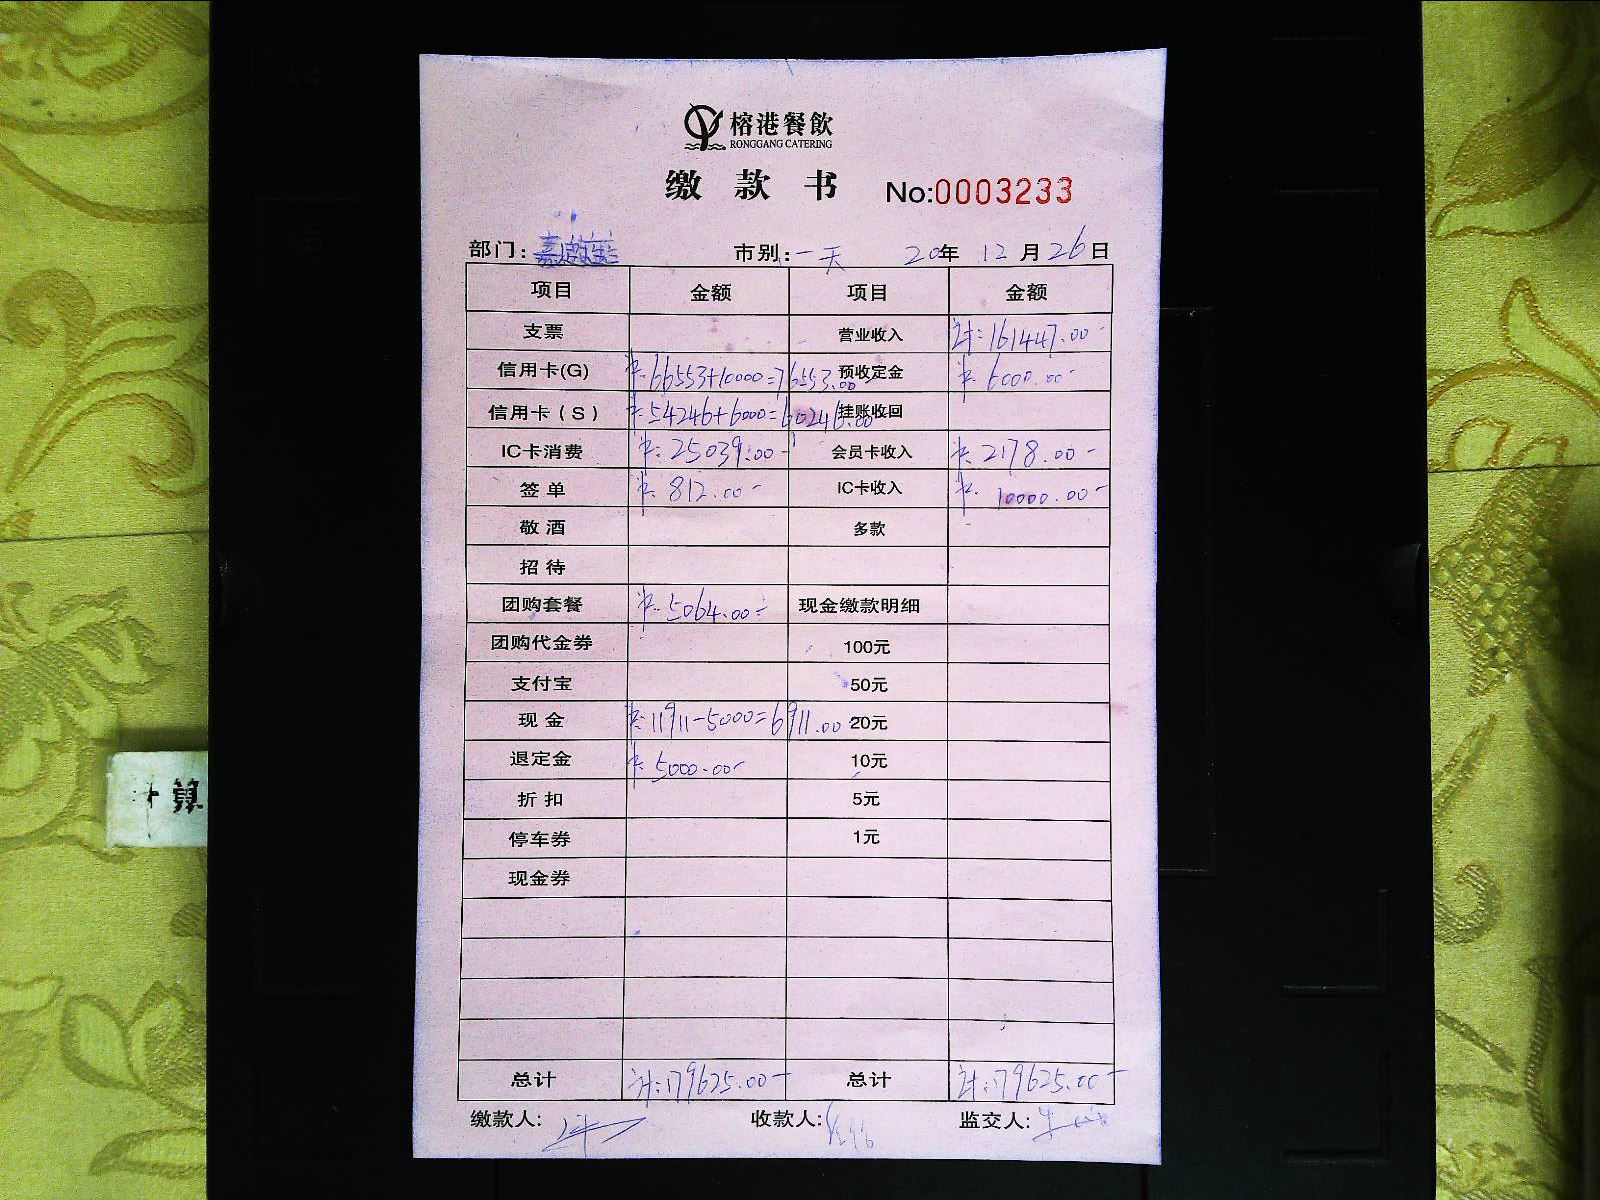 榕港餐飲
RONGGANG CATERING
缴款书 No:0003233
部门: 市别:一天 20年 12月26日
项目 金额 项目 金额
支票 营业收入 计:161447.00-
信用卡(G) 卡:66553+10000=76553.00- 预收定金 卡:6000.00-
信用卡(S) 卡:54246+6000=60246.00- 挂账收回
IC卡消费 卡:25039.00- 会员卡收入 卡:2178.00-
签单 卡:812.00- IC卡收入 卡:10000.00-
敬酒 多款
招待
团购套餐 卡:5064.00- 现金缴款明细
团购代金券 100元
支付宝 50元
现金 卡:11911-5000=6911.00 20元
退定金 卡:5000.00- 10元
折扣 5元
停车券 1元
现金券
总计 计:179625.00- 总计 计:179625.00-
缴款人: 收款人: 监交人:
计算